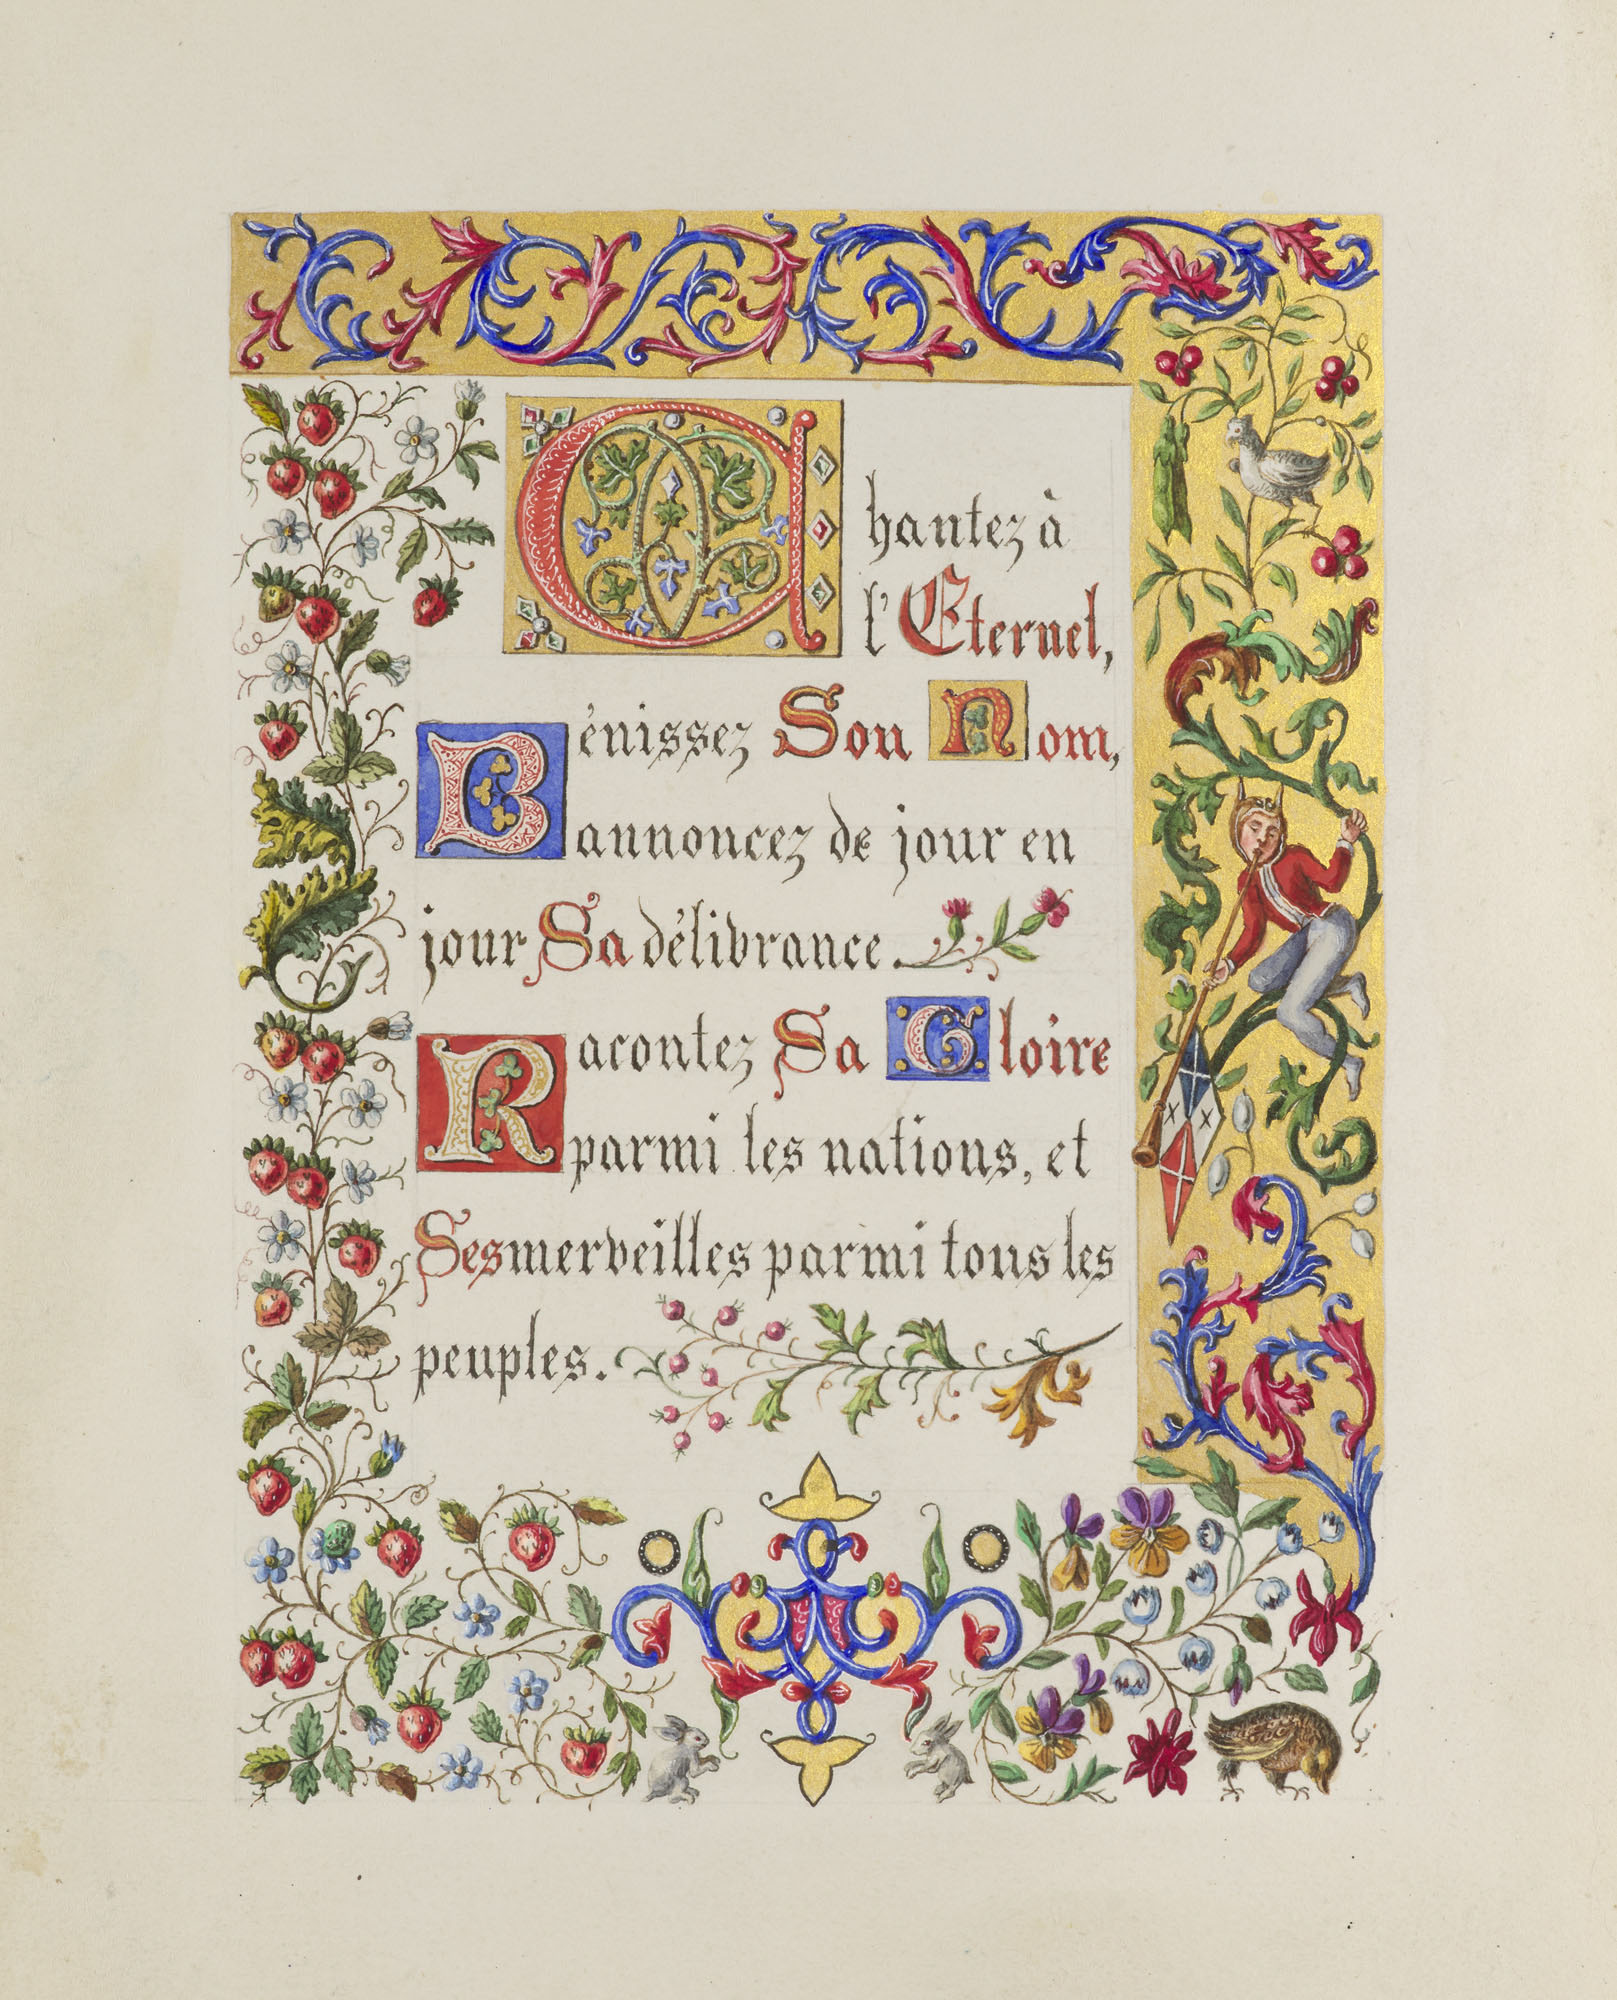 Chantez à
l'Eternel,
Bénissez Son Nom,
annoncez de jour en
jour Sa délivrance.
Racontez Sa Gloire
parmi les nations, et
Ses merveilles parmi tous les
peuples.